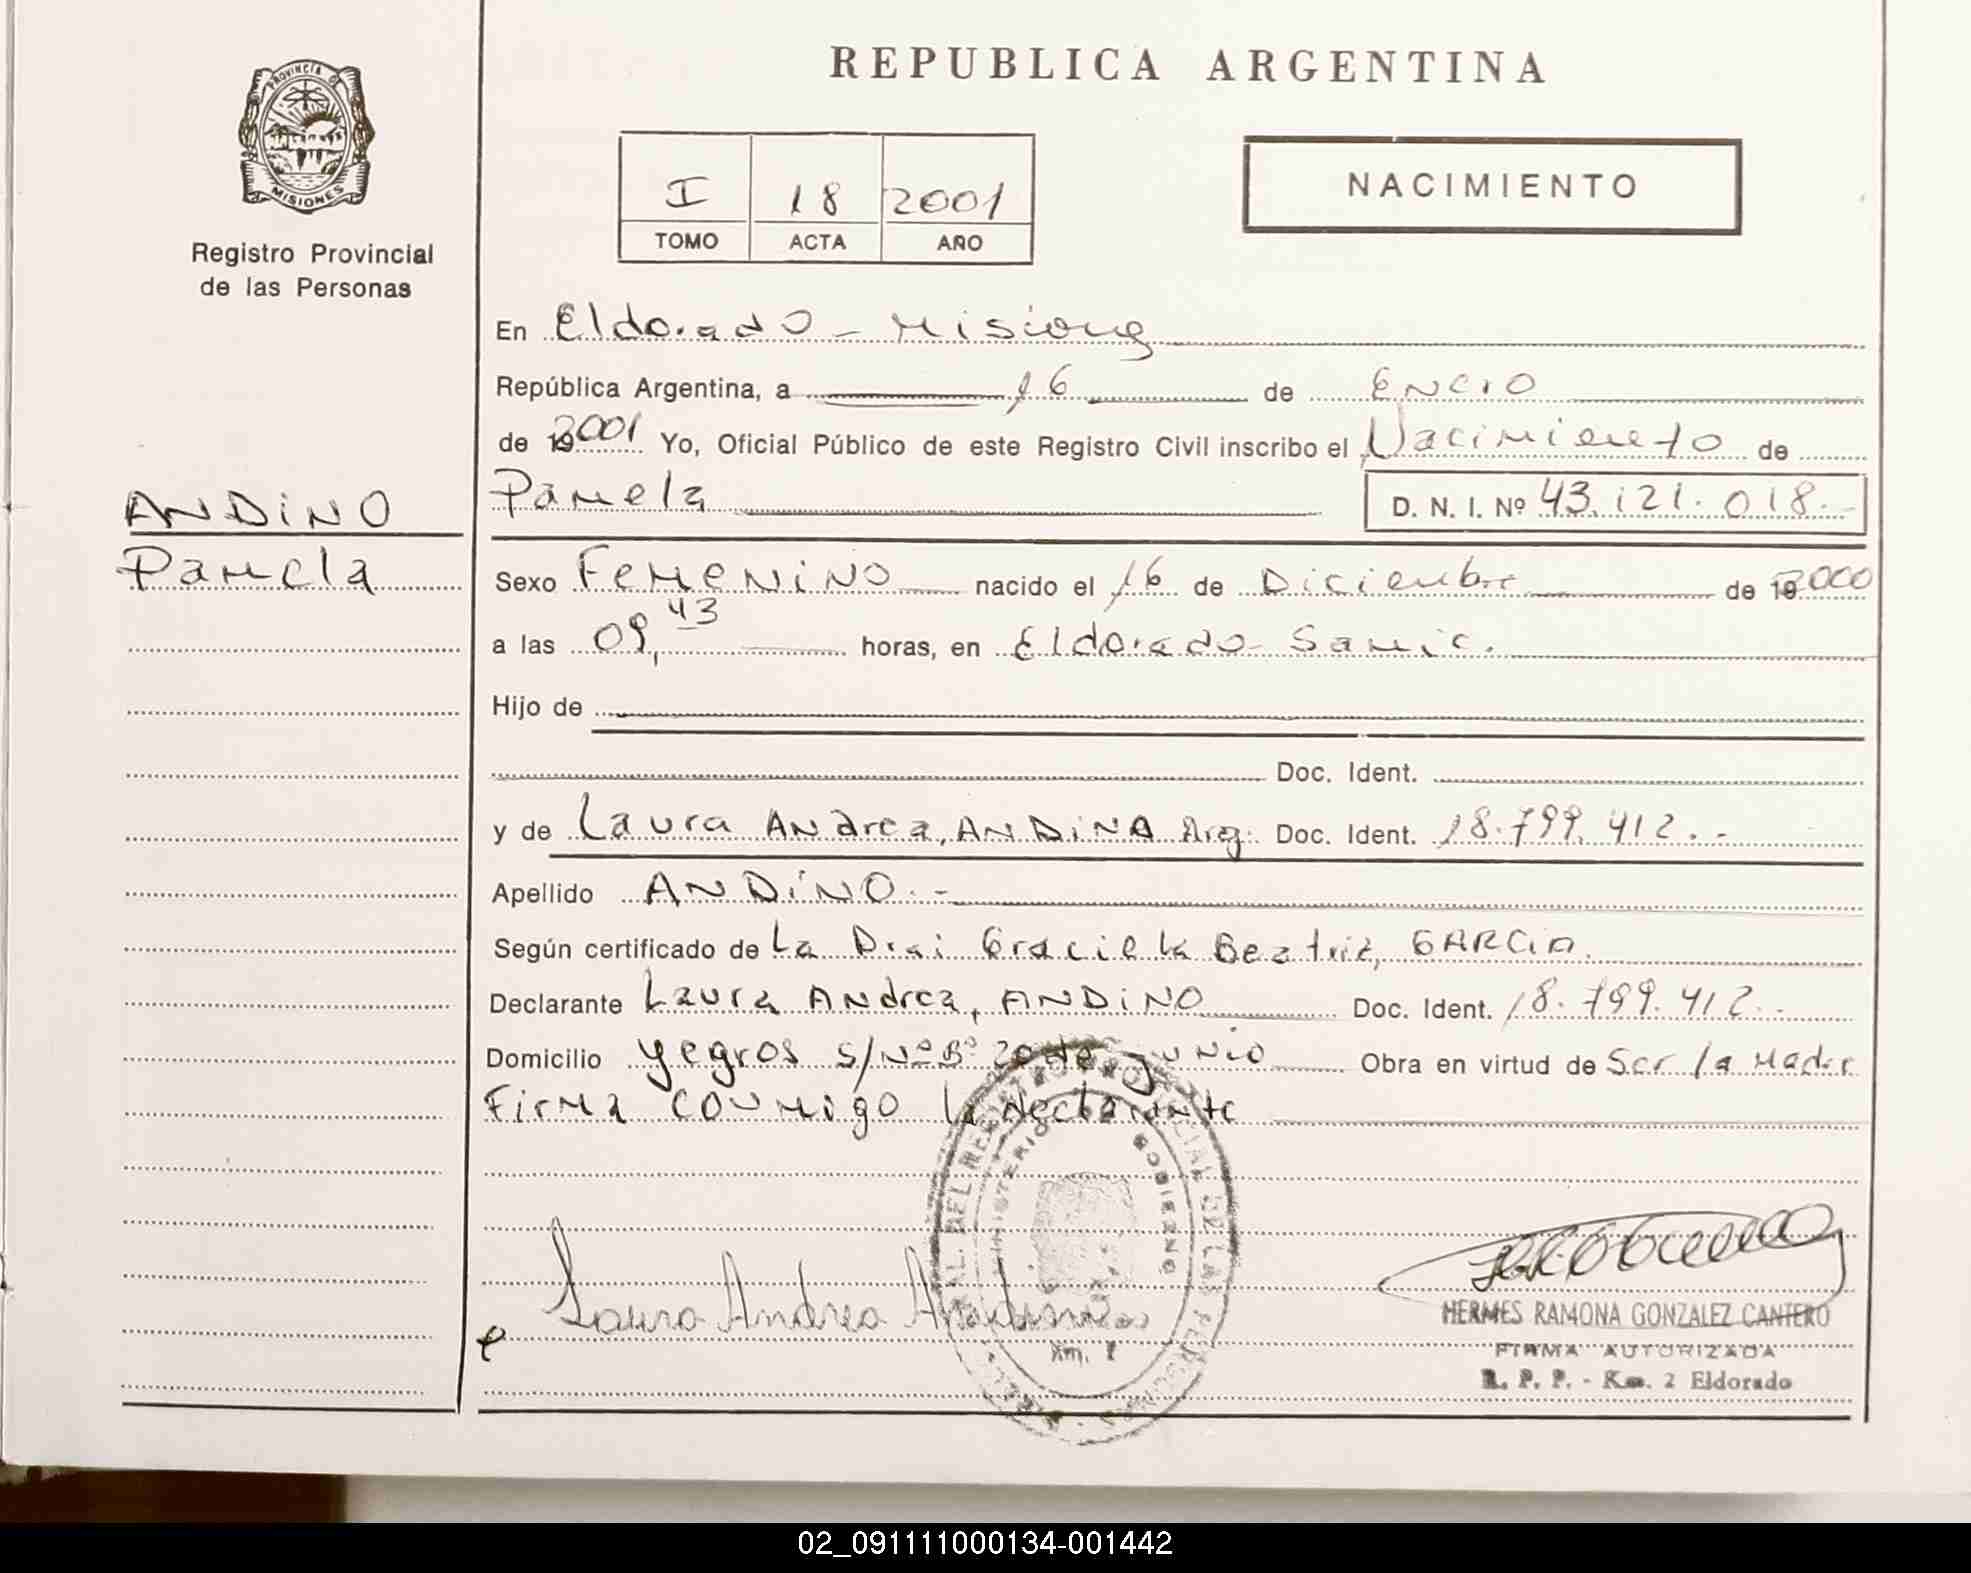 PROVINCIA DE
MISIONES
Registro Provincial
de las Personas
REPUBLICA ARGENTINA
I 18 2001
TOMO ACTA AÑO
NACIMIENTO
En Eldorado - Misiones
República Argentina, a 16 de Enero
de 2001 Yo, Oficial Público de este Registro Civil inscribo el Nacimiento de
Pamela D. N. I. Nº 43.121.018.-
ANDINO
Pamela
Sexo Femenino nacido el 16 de Diciembre de 2000
a las 09,43 horas, en Eldorado - Samic.
Hijo de
Doc. Ident.
y de Laura Andrea, ANDINO Arg. Doc. Ident. 18.799.412.-
Apellido ANDINO.-
Según certificado de La Dra. Graciela Beatriz, GARCIA.
Declarante Laura Andrea, ANDINO Doc. Ident. 18.799.412.-
Domicilio Yegros S/Nº Bº 20 de Junio Obra en virtud de Ser la Madre
Firma conmigo la declarante
Laura Andrea
Km. 2
HERMES RAMONA GONZALEZ CANTERO
FIRMA AUTORIZADA
R. P. P. - Km. 2 Eldorado
02_091111000134-001442